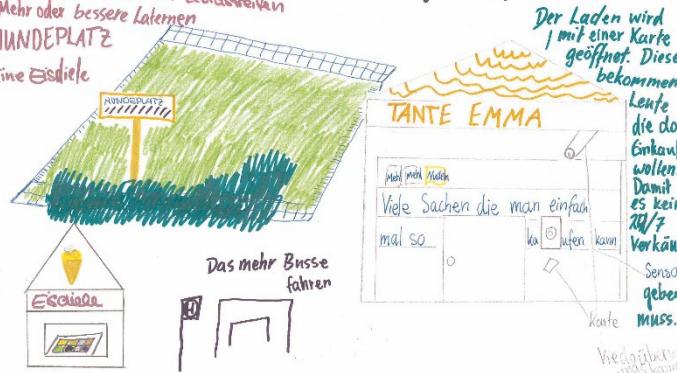 Mehr oder bessere Laternen
HUNDEPLATZ
Eine Eisdiele
HUNDEPLATZ
Eisdiele
Das mehr Busse
fahren
H
TANTE EMMA
Mehl Mehl Nudeln
Viele Sachen die man einfach
mal so kaufen kann
Der Laden wird
mit einer Karte
geöffnet. Diese
bekommen
Leute
die do
Einkauf
wollen.
Damit
es kein
24/7
Verkäu
geben
muss.
Senso
Karte